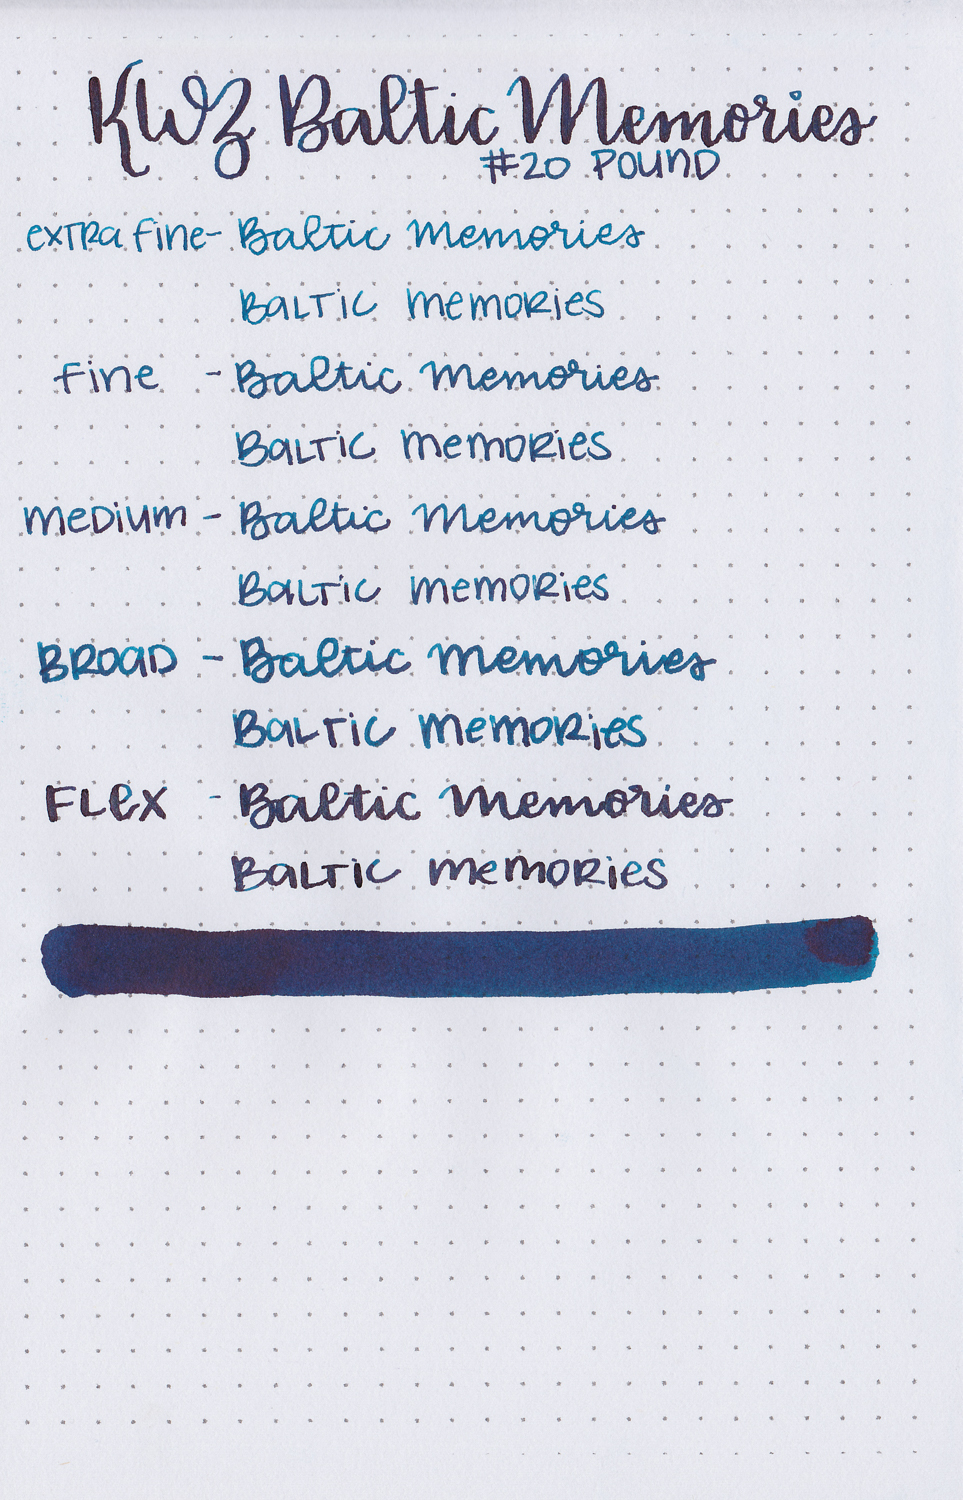 KWZ Baltic Memories
#20 POUND
extra fine - Baltic Memories
Baltic Memories
fine - Baltic Memories
Baltic Memories
Medium - Baltic Memories
Baltic Memories
BROAD - Baltic Memories
Baltic Memories
FLEX - Baltic Memories
Baltic Memories